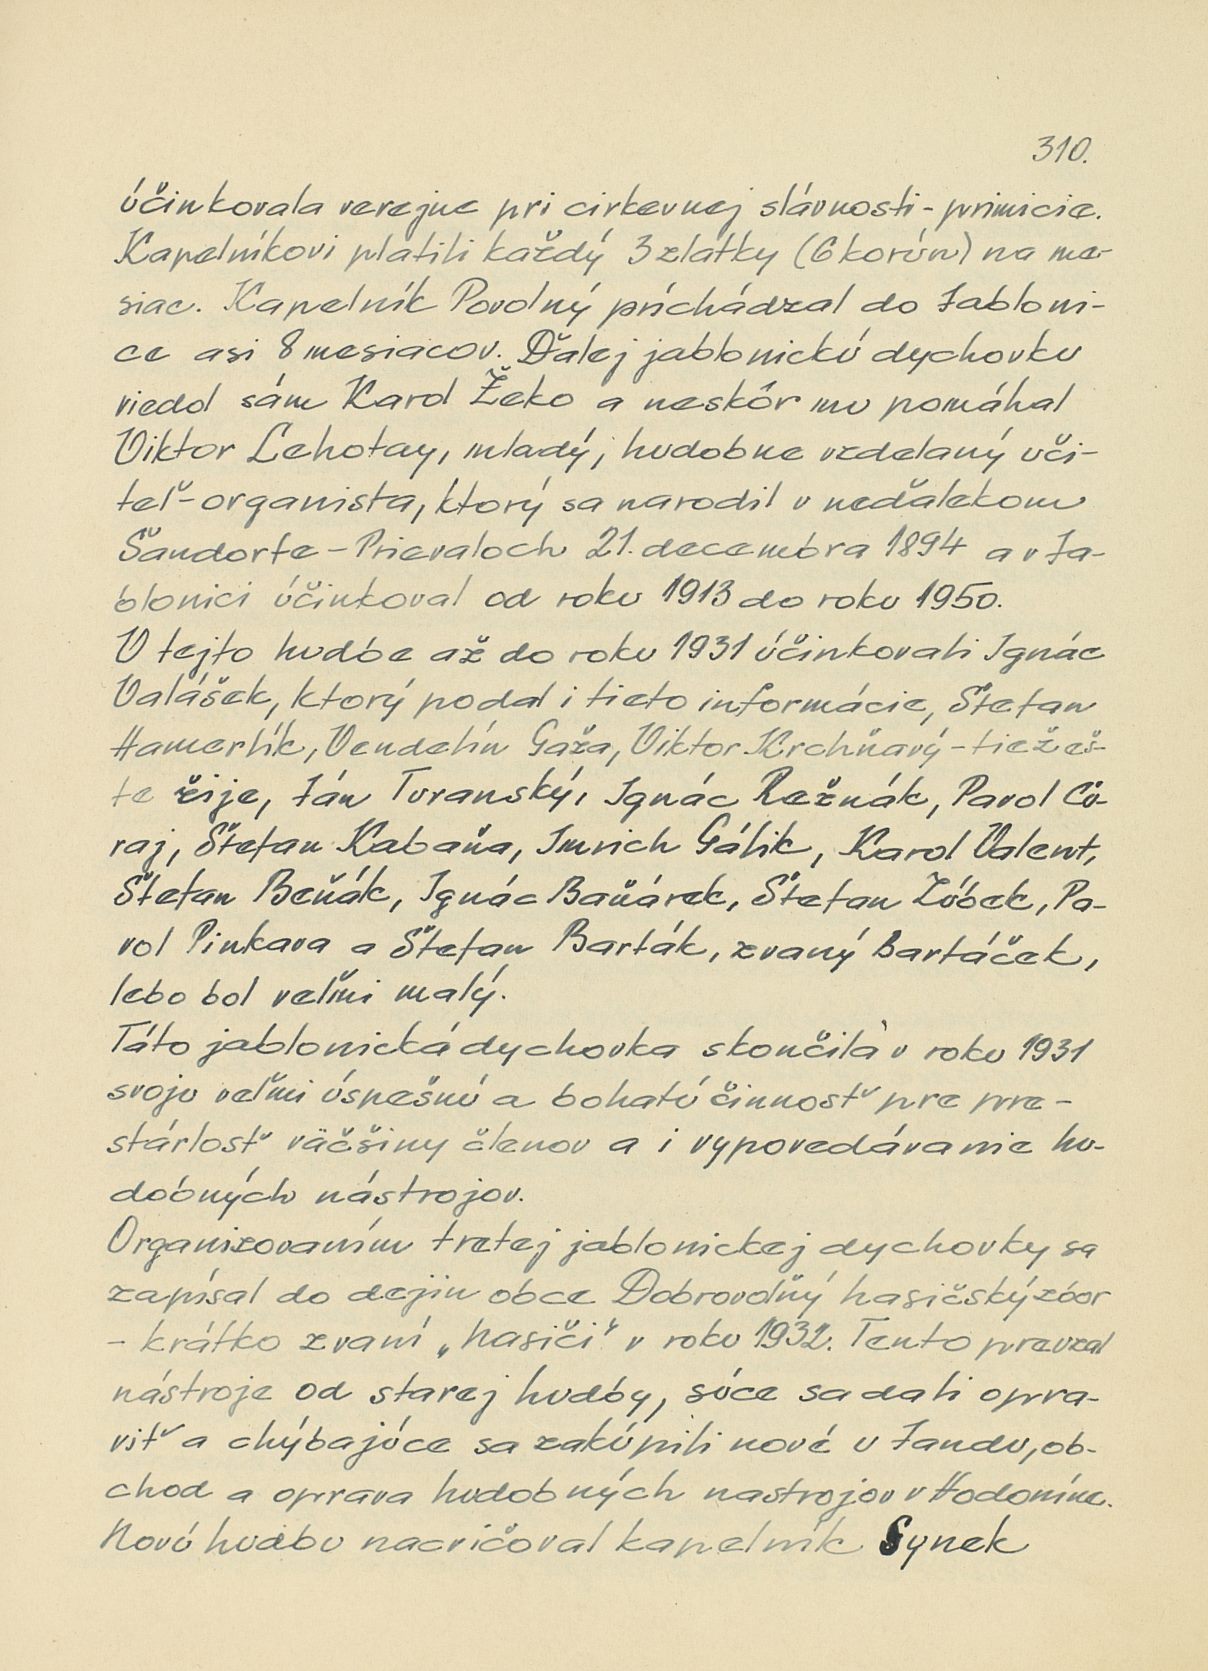 310.
účinkovala verejne pri cirkevnej slávnosti - primicie.
Kapelníkovi platili každý 3 zlatky (6 korún) na me-
siac. Kapelník Povolný prichádzal do Jabloni-
ce asi 8 mesiacov. Ďalej jablonickú dychovku
viedol sám Karol Žeko a neskôr mu pomáhal
Viktor Lehotay, mladý, hudobne vzdelaný uči-
teľ-organista, ktorý sa narodil v neďalekom
Šandorfe - Prievaloch 21. decembra 1894 a v Ja-
blonici účinkoval od roku 1913 do roku 1950.
V tejto hudbe až do roku 1931 účinkovali Ignác
Valášek, ktorý podal i tieto informácie, Štefan
Hamerlík, Vendelín Gaža, Viktor Krchňavý - tiež eš-
te žije, Ján Turanský, Ignác Režnák, Pavol Cö-
raj, Štefan Kabaňa, Imrich Gálik, Karol Valent,
Štefan Beňák, Ignác Baňárek, Štefan Žúbek, Pa-
vol Pinkava a Štefan Barták, zvaný Bartáček,
lebo bol veľmi malý.
Táto jablonická dychovka skončila v roku 1931
svoju veľmi úspešnú a bohatú činnosť pre pre-
stárlosť väčšiny členov a i vypovedávanie hu-
dobných nástrojov.
Organizovaním tretej jablonickej dychovky sa
zapísal do dejín obce Dobrovoľný hasičský zbor
- krátko zvaní „hasiči" v roku 1932. Tento prevzal
nástroje od starej hudby, súce sa dali opra-
viť a chýbajúce sa zakúpili nové u Jandu, ob-
chod a oprava hudobných nastrojov v Hodoníne.
Novú hudbu nacvičoval kapelník Synek